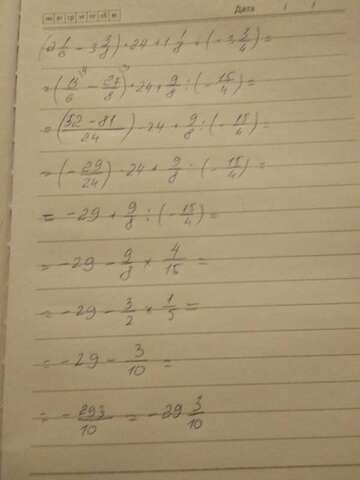 Дата
(2 1/6 - 3 3/8) · 24 + 1 1/8 : (-3 3/4) =
= (13/6 - 27/8) · 24 + 9/8 : (-15/4) =
= (52 - 81/24) · 24 + 9/8 : (-15/4) =
= (-29/24) · 24 + 9/8 : (-15/4) =
= -29 + 9/8 : (-15/4) =
= -29 - 9/8 × 4/15 =
= -29 - 3/2 × 1/5 =
= -29 - 3/10 =
= -293/10 = -29 3/10